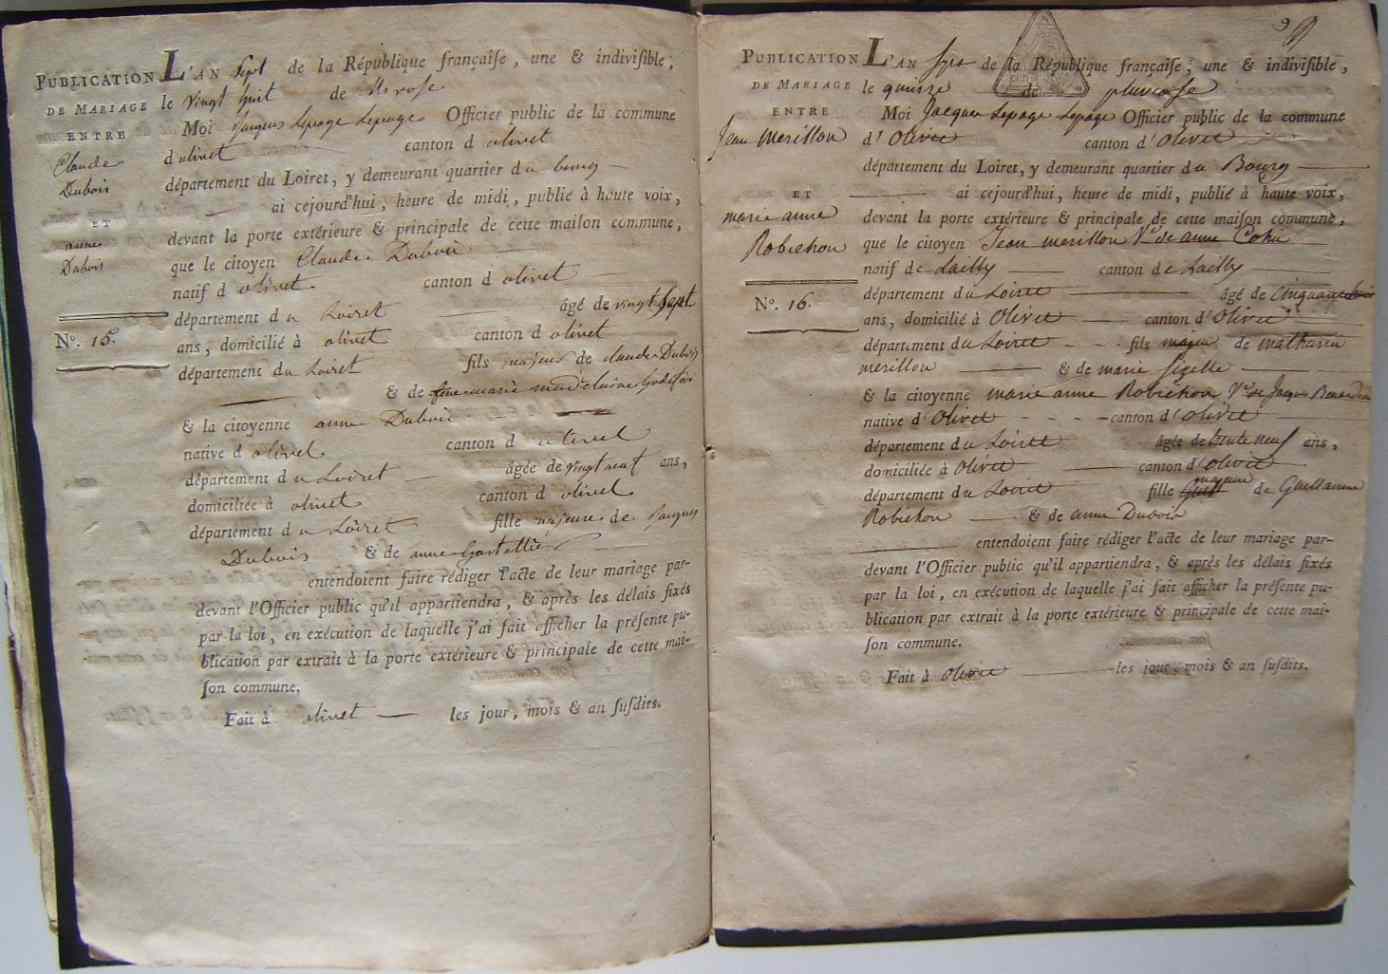 PUBLICATION
DE MARIAGE
ENTRE
Claude
Dubois
ET
anne
Dubois
Nº. 15.
L'AN Sept de la République françaiſe, une & indiviſible,
le vingt huit de Nivose
Moi Jacques Lepage Lepage Officier public de la commune
d olivet canton d olivet
département du Loiret, y demeurant quartier du bourg
ai cejourd'hui, heure de midi, publié à haute voix,
devant la porte extérieure & principale de cette maiſon commune,
que le citoyen Claude Dubois
natif d olivet canton d olivet
département du Loiret âgé de vingt Sept
ans, domicilié à olivet canton d olivet
département du Loiret fils majeur de claude Dubois
& de marie madelaine
& la citoyenne anne Dubois
native d olivet canton d olivet
département du Loiret âgée de vingt neuf ans,
domiciliée à olivet canton d olivet
département du Loiret fille majeure de Jacques
Dubois & de anne
entendoient faire rédiger l'acte de leur mariage par-
devant l'Officier public qu'il appartiendra, & après les délais fixés
par la loi, en exécution de laquelle j'ai fait afficher la préſente pu-
blication par extrait à la porte extérieure & principale de cette mai-
ſon commune.
Fait à olivet les jour, mois & an ſuſdits.
9
PUBLICATION
DE MARIAGE
ENTRE
Jean Merillon
ET
marie anne
Robichon
Nº. 16.
L'AN Sept de la République françaiſe, une & indiviſible,
le quinze de pluviose
Moi Jacques Lepage Lepage Officier public de la commune
d' Olivet canton d' Olivet
département du Loiret, y demeurant quartier du Bourg
ai cejourd'hui, heure de midi, publié à haute voix,
devant la porte extérieure & principale de cette maiſon commune,
que le citoyen Jean merillon Vf de anne Cohu
natif de Lailly canton de Lailly
département du Loiret âgé de cinquante
ans, domicilié à Olivet canton d' Olivet
département du Loiret fils majeur de mathurin
merillon & de marie
& la citoyenne marie anne Robichon Ve de Jacques
native d' Olivet canton d' Olivet
département du Loiret âgée de trente neuf ans,
domiciliée à Olivet canton d' olivet
département du Loiret fille majeure de Guillaume
Robichon & de anne Dubois
entendoient faire rédiger l'acte de leur mariage par-
devant l'Officier public qu'il appartiendra, & après les délais fixés
par la loi, en exécution de laquelle j'ai fait afficher la préſente pu-
blication par extrait à la porte extérieure & principale de cette mai-
ſon commune.
Fait à Olivet les jour, mois & an ſuſdits.